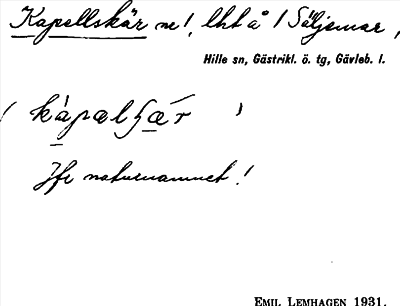 Kapellskär ne!, lht å 1 Säljemar,
Hille sn, Gästrikl. ö. tg, Gävleb. l.
Jfr naturnamnet!
EMIL LEMHAGEN 1931.